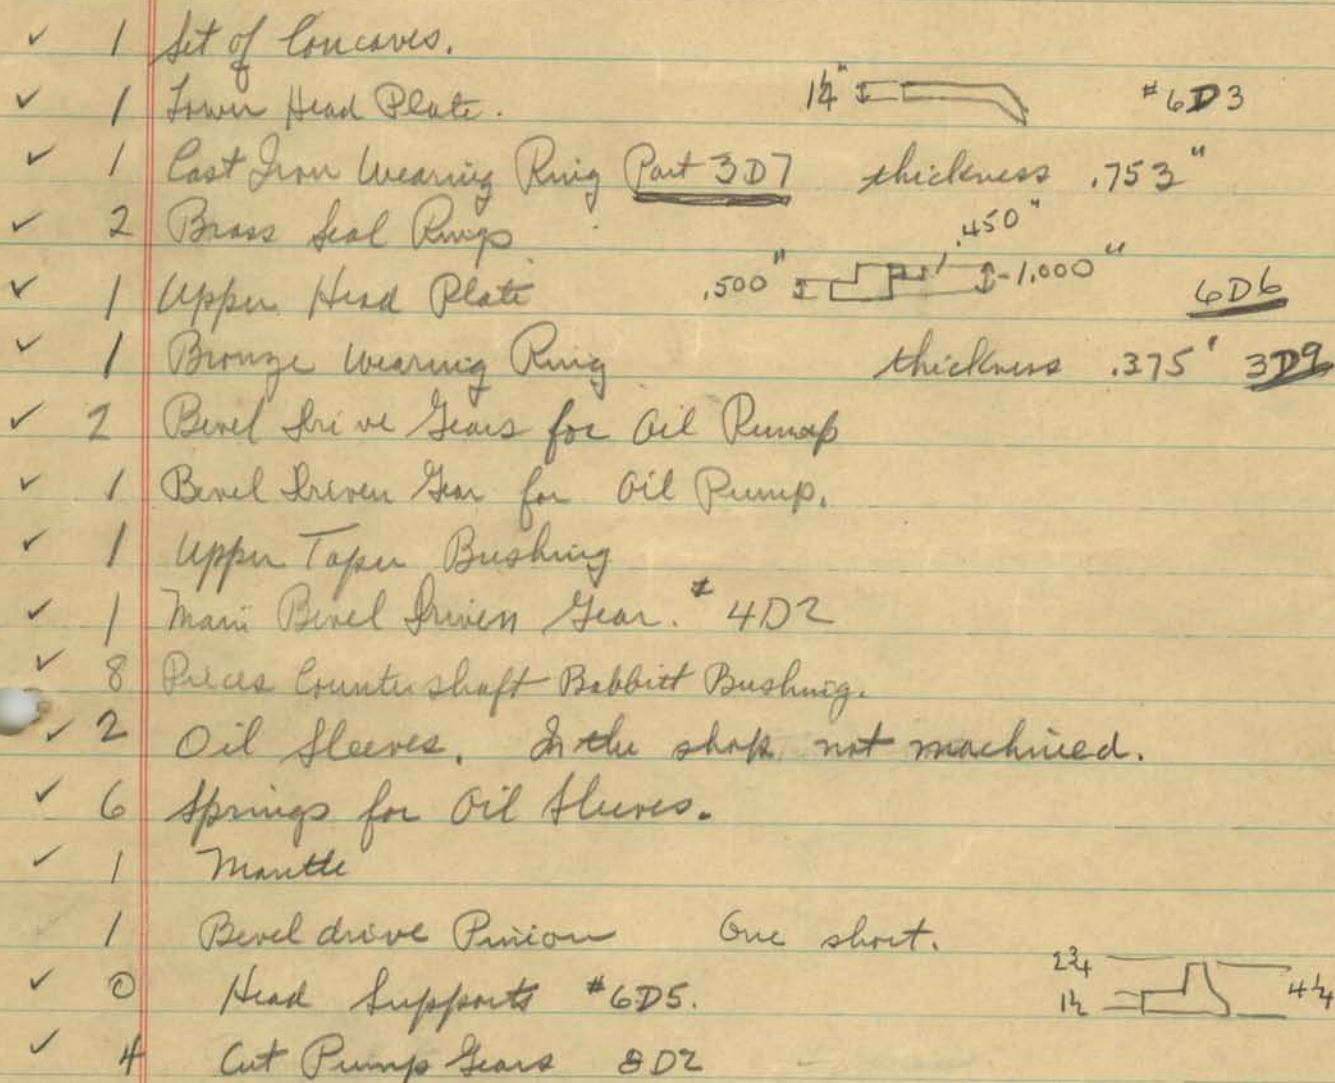 ✓ 1 Set of Concaves.
✓ 1 Lower Head Plate. 1¼" #6D3
✓ 1 Cast Iron Wearing Ring Part 3D7 thickness .753"
✓ 2 Brass Seal Rings
✓ 1 Upper Head Plate .500" .450" 1.000" 6D6
✓ 1 Bronze Wearing Ring thickness .375' 3D9
✓ 2 Bevel Drive Gears for Oil Pump
✓ 1 Bevel Driven Gear for Oil Pump.
✓ 1 Upper Taper Bushing
✓ 1 Main Bevel Driven Gear. # 4D2
✓ 8 Pieces Countershaft Babbitt Bushing.
✓ 2 Oil Sleeves. In the shop not machined.
✓ 6 Springs for Oil Sleeves.
✓ 1 Mantle
1 Bevel drive Pinion One short.
✓ 0 Head Supports #6D5. 2¾ 1½ 4¼
✓ 4 Cut Pump Gears 8D2